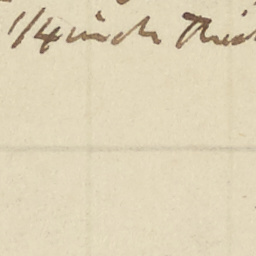 1/4 inch thick